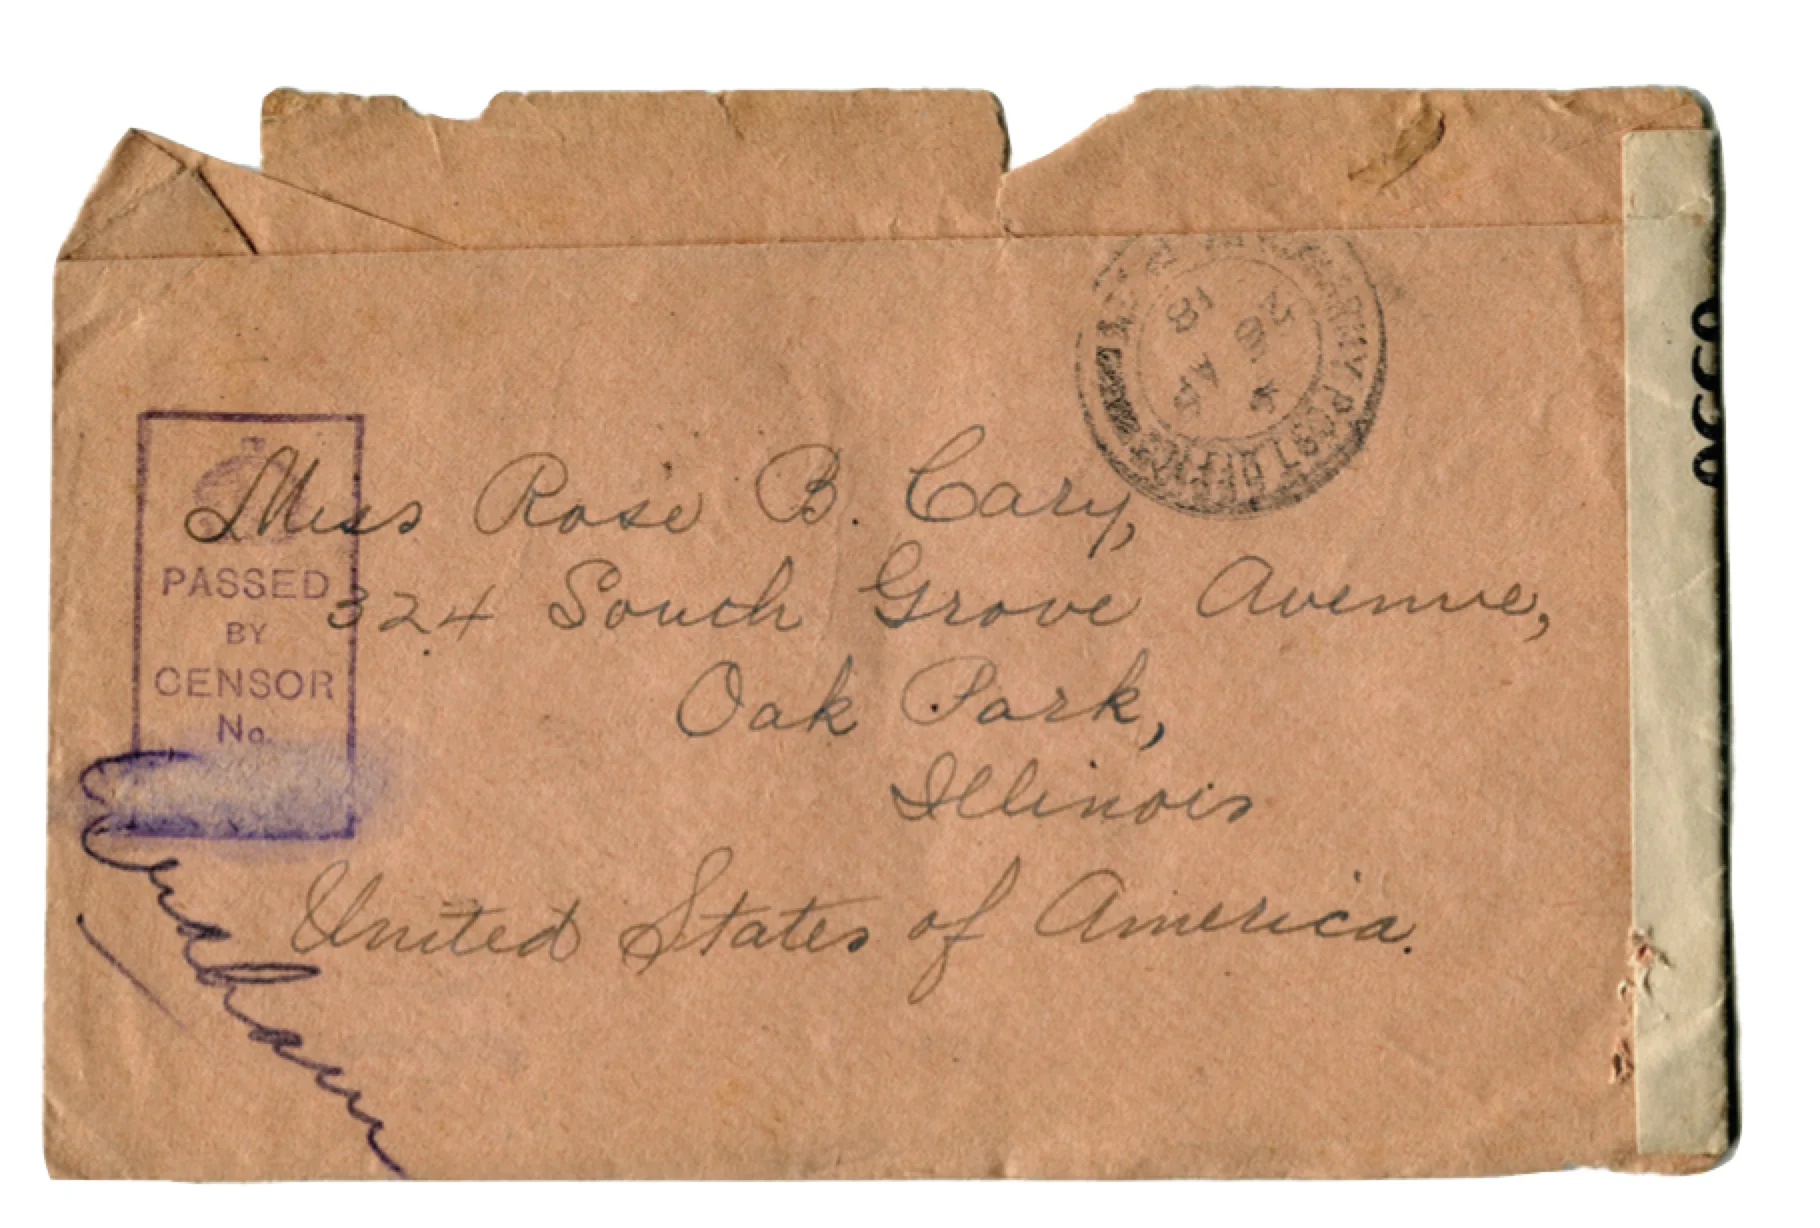 ARMY POST OFFICE
PASSED
BY
CENSOR
No.
Miss Rose B. Cary,
324 South Grove Avenue,
Oak Park,
Illinois
United States of America.